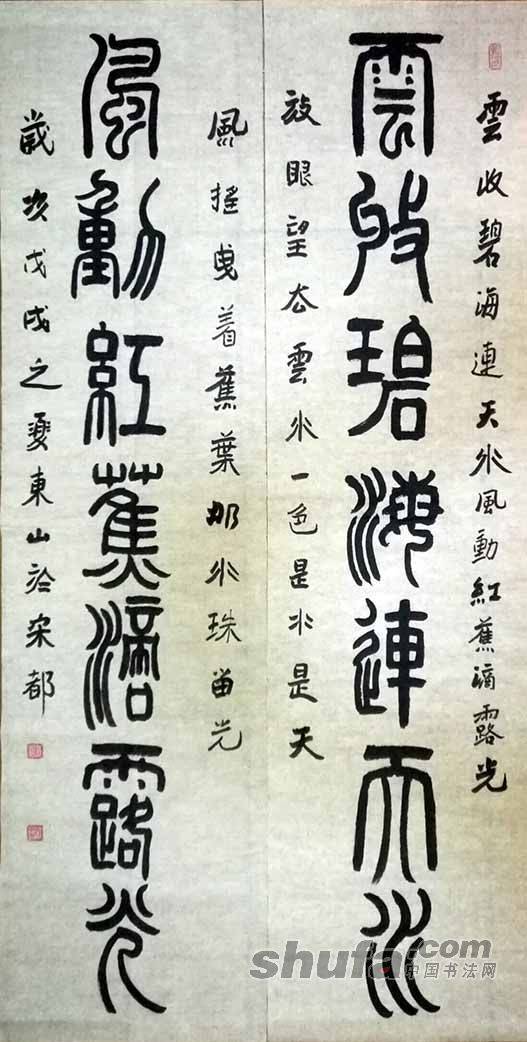 雲收碧海連天水風動紅蕉滴露光
雲收碧海連天水
放眼望去雲水一色是水是天
風搖曳着蕉葉那水珠畄光
風動紅蕉滴露光
歲次戊戌之夏東山於宋都
shufa.com
中国书法网